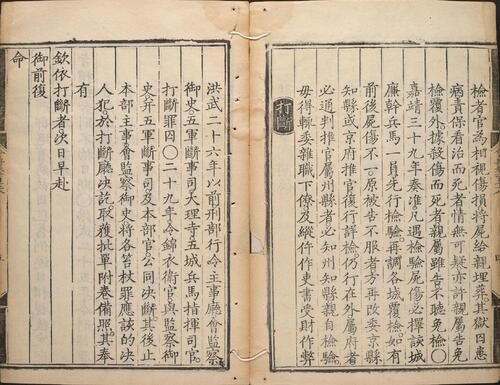 檢者官為相視傷損將屍給親埋葬其獄囚患
病責保看治而死者情無可疑亦許親屬告免
檢覆外據殺傷而死者親屬雖告不聽免檢〇
嘉靖三十九年奏准凡遇檢驗屍傷必擇該城
廉幹兵馬一員先行檢驗再調各城覆檢如有
前後屍傷不一原被告不服者方再改委京縣
知縣或京府推官復行詳檢仍行在外屬府者
必通判推官屬州縣者必知州知縣親自檢驗
毋得轉委雜職下僚及縱仵作吏書受財作弊
打斷
洪武二十六年以前刑部行令主事廳會監察
御史五軍斷事司大理寺五城兵馬指揮司官
打斷罪囚〇二十九年令錦衣衛官與監察御
史并五軍斷事司及本部官公同決斷其後止
本部主事會監察御史將各笞杖罪應該的決
人犯於打斷廳決訖取獲批單附卷備照其奉
有
欽依打斷者次日早赴
御前復
命